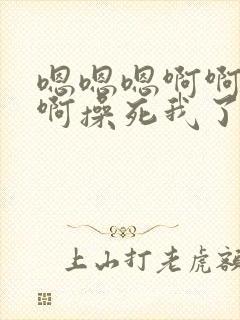 嗯嗯嗯啊啊
啊操死我了
上山打老虎额